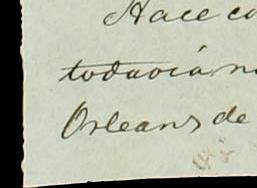 Hace co
todavia n
Orleans de